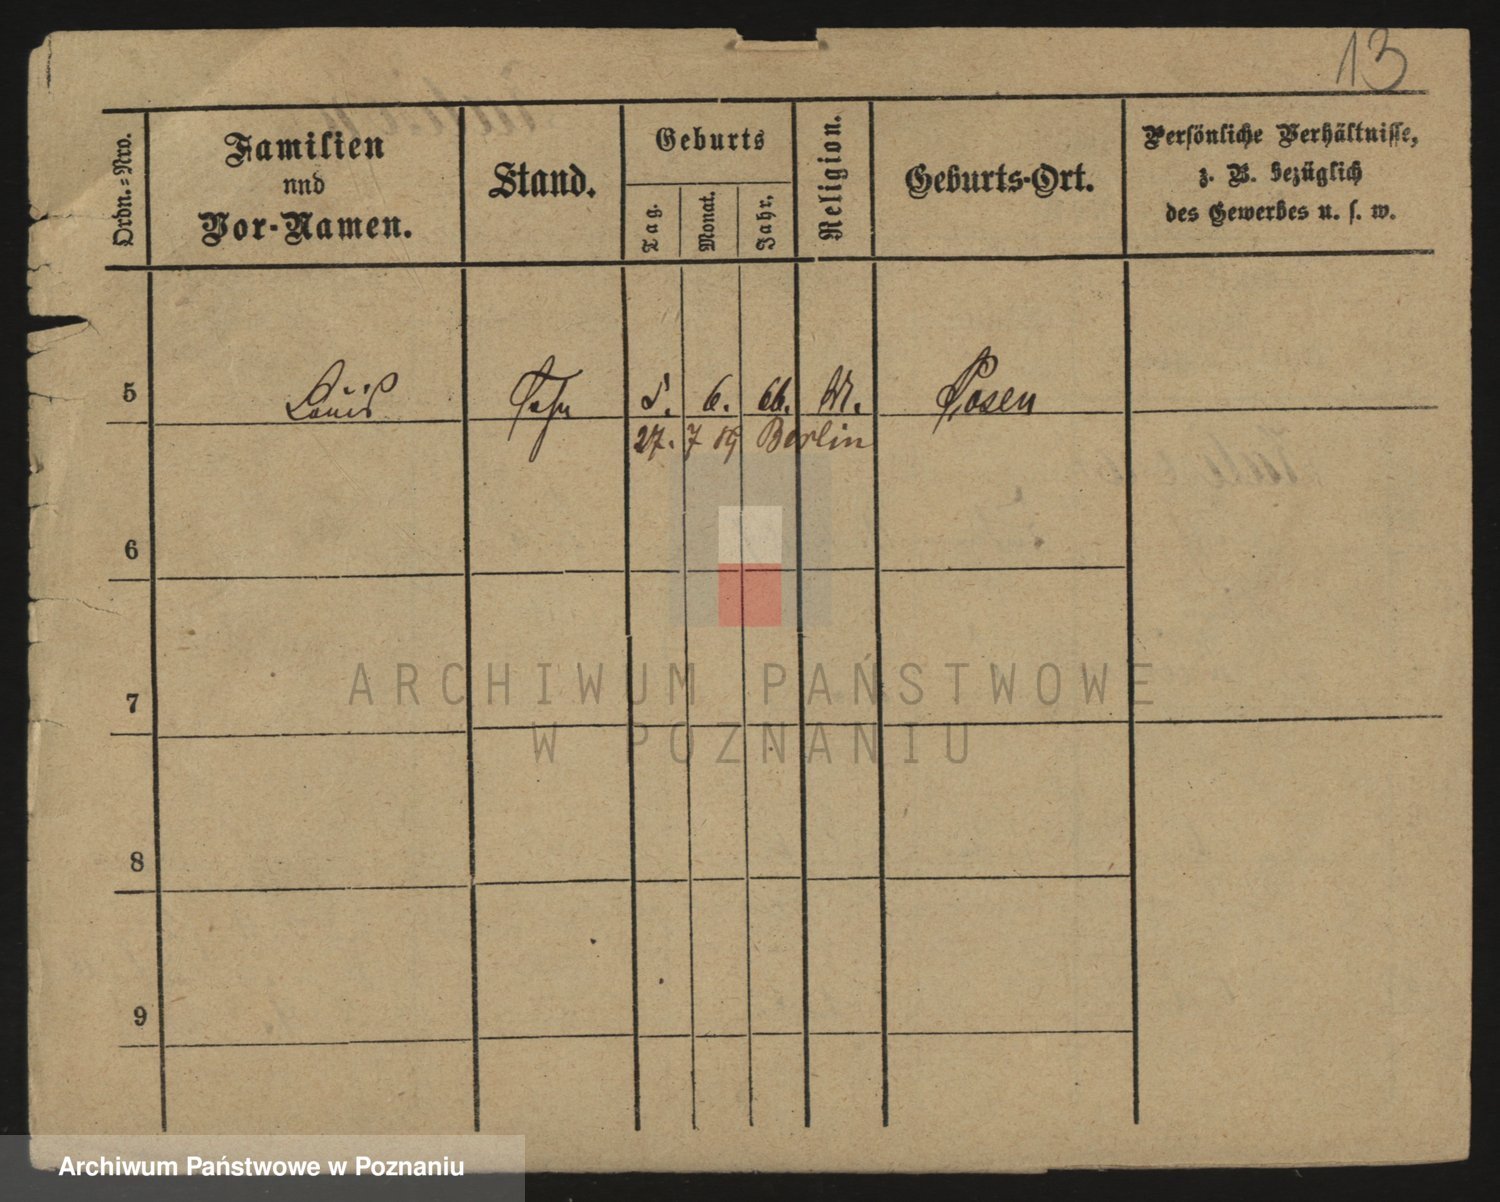 13
Ordn.=Nro.
Familien
nnd
Vor-Namen.
Stand.
Geburts
Tag.
Monat.
Jahr.
Religion.
Geburts-Ort.
Persönliche Verhältnisse,
z. B. bezüglich
des Gewerbes u. s. w.
5 Louis Sohn 5. 6. 66. M. Posen
27. 7 89 Berlin
6
7
8
9
ARCHIWUM PAŃSTWOWE
W POZNANIU
Archiwum Państwowe w Poznaniu